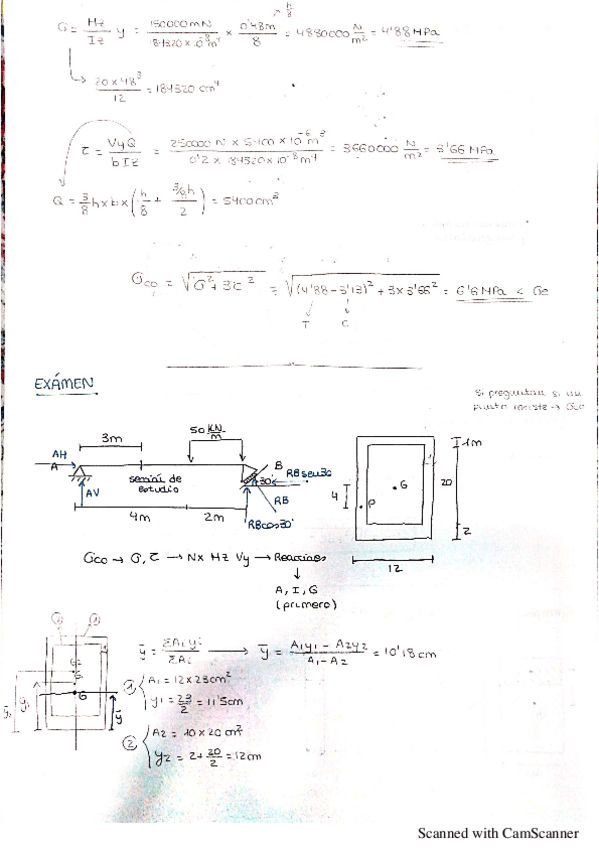 h/8
σ = Mz/Iz y = 150000 mN / 184320 x 10⁻⁸ m⁴ x 0'48m / 8 = 4880000 N/m² = 4'88 MPa
20 x 48³ / 12 = 184320 cm⁴
τ = VyQ / bIz = 250000 N x 5400 x 10⁻⁶ m³ / 0'2 x 184320 x 10⁻⁸ m⁴ = 3660000 N/m² = 3'66 MPa
Q = 3/8 h x b x (h/8 + 3/8h / 2) = 5400 cm³
σco = √σ² + 3τ² = √(4'88 - 3'13)² + 3 x 3'66² = 6'6 MPa < σe
T C
EXÁMEN
Si preguntan si un
punto resiste → σco
3m
50 KN/m
AH
A
B
30°
RB sen30
sección de
estudio
AV
RB
4m
2m
RB cos30°
1m
G
20
4
P
2
12
σco → σ, τ → Nx Mz Vy → Reacciones
A, I, G
(primero)
ȳ = ΣAiyi / ΣAi → ȳ = A1y1 - A2y2 / A1 - A2 = 10'18 cm
① A1 = 12 x 23 cm²
y1 = 23/2 = 11'5 cm
② A2 = 10 x 20 cm²
y2 = 2 + 20/2 = 12 cm
② ①
G
ȳ
Scanned with CamScanner